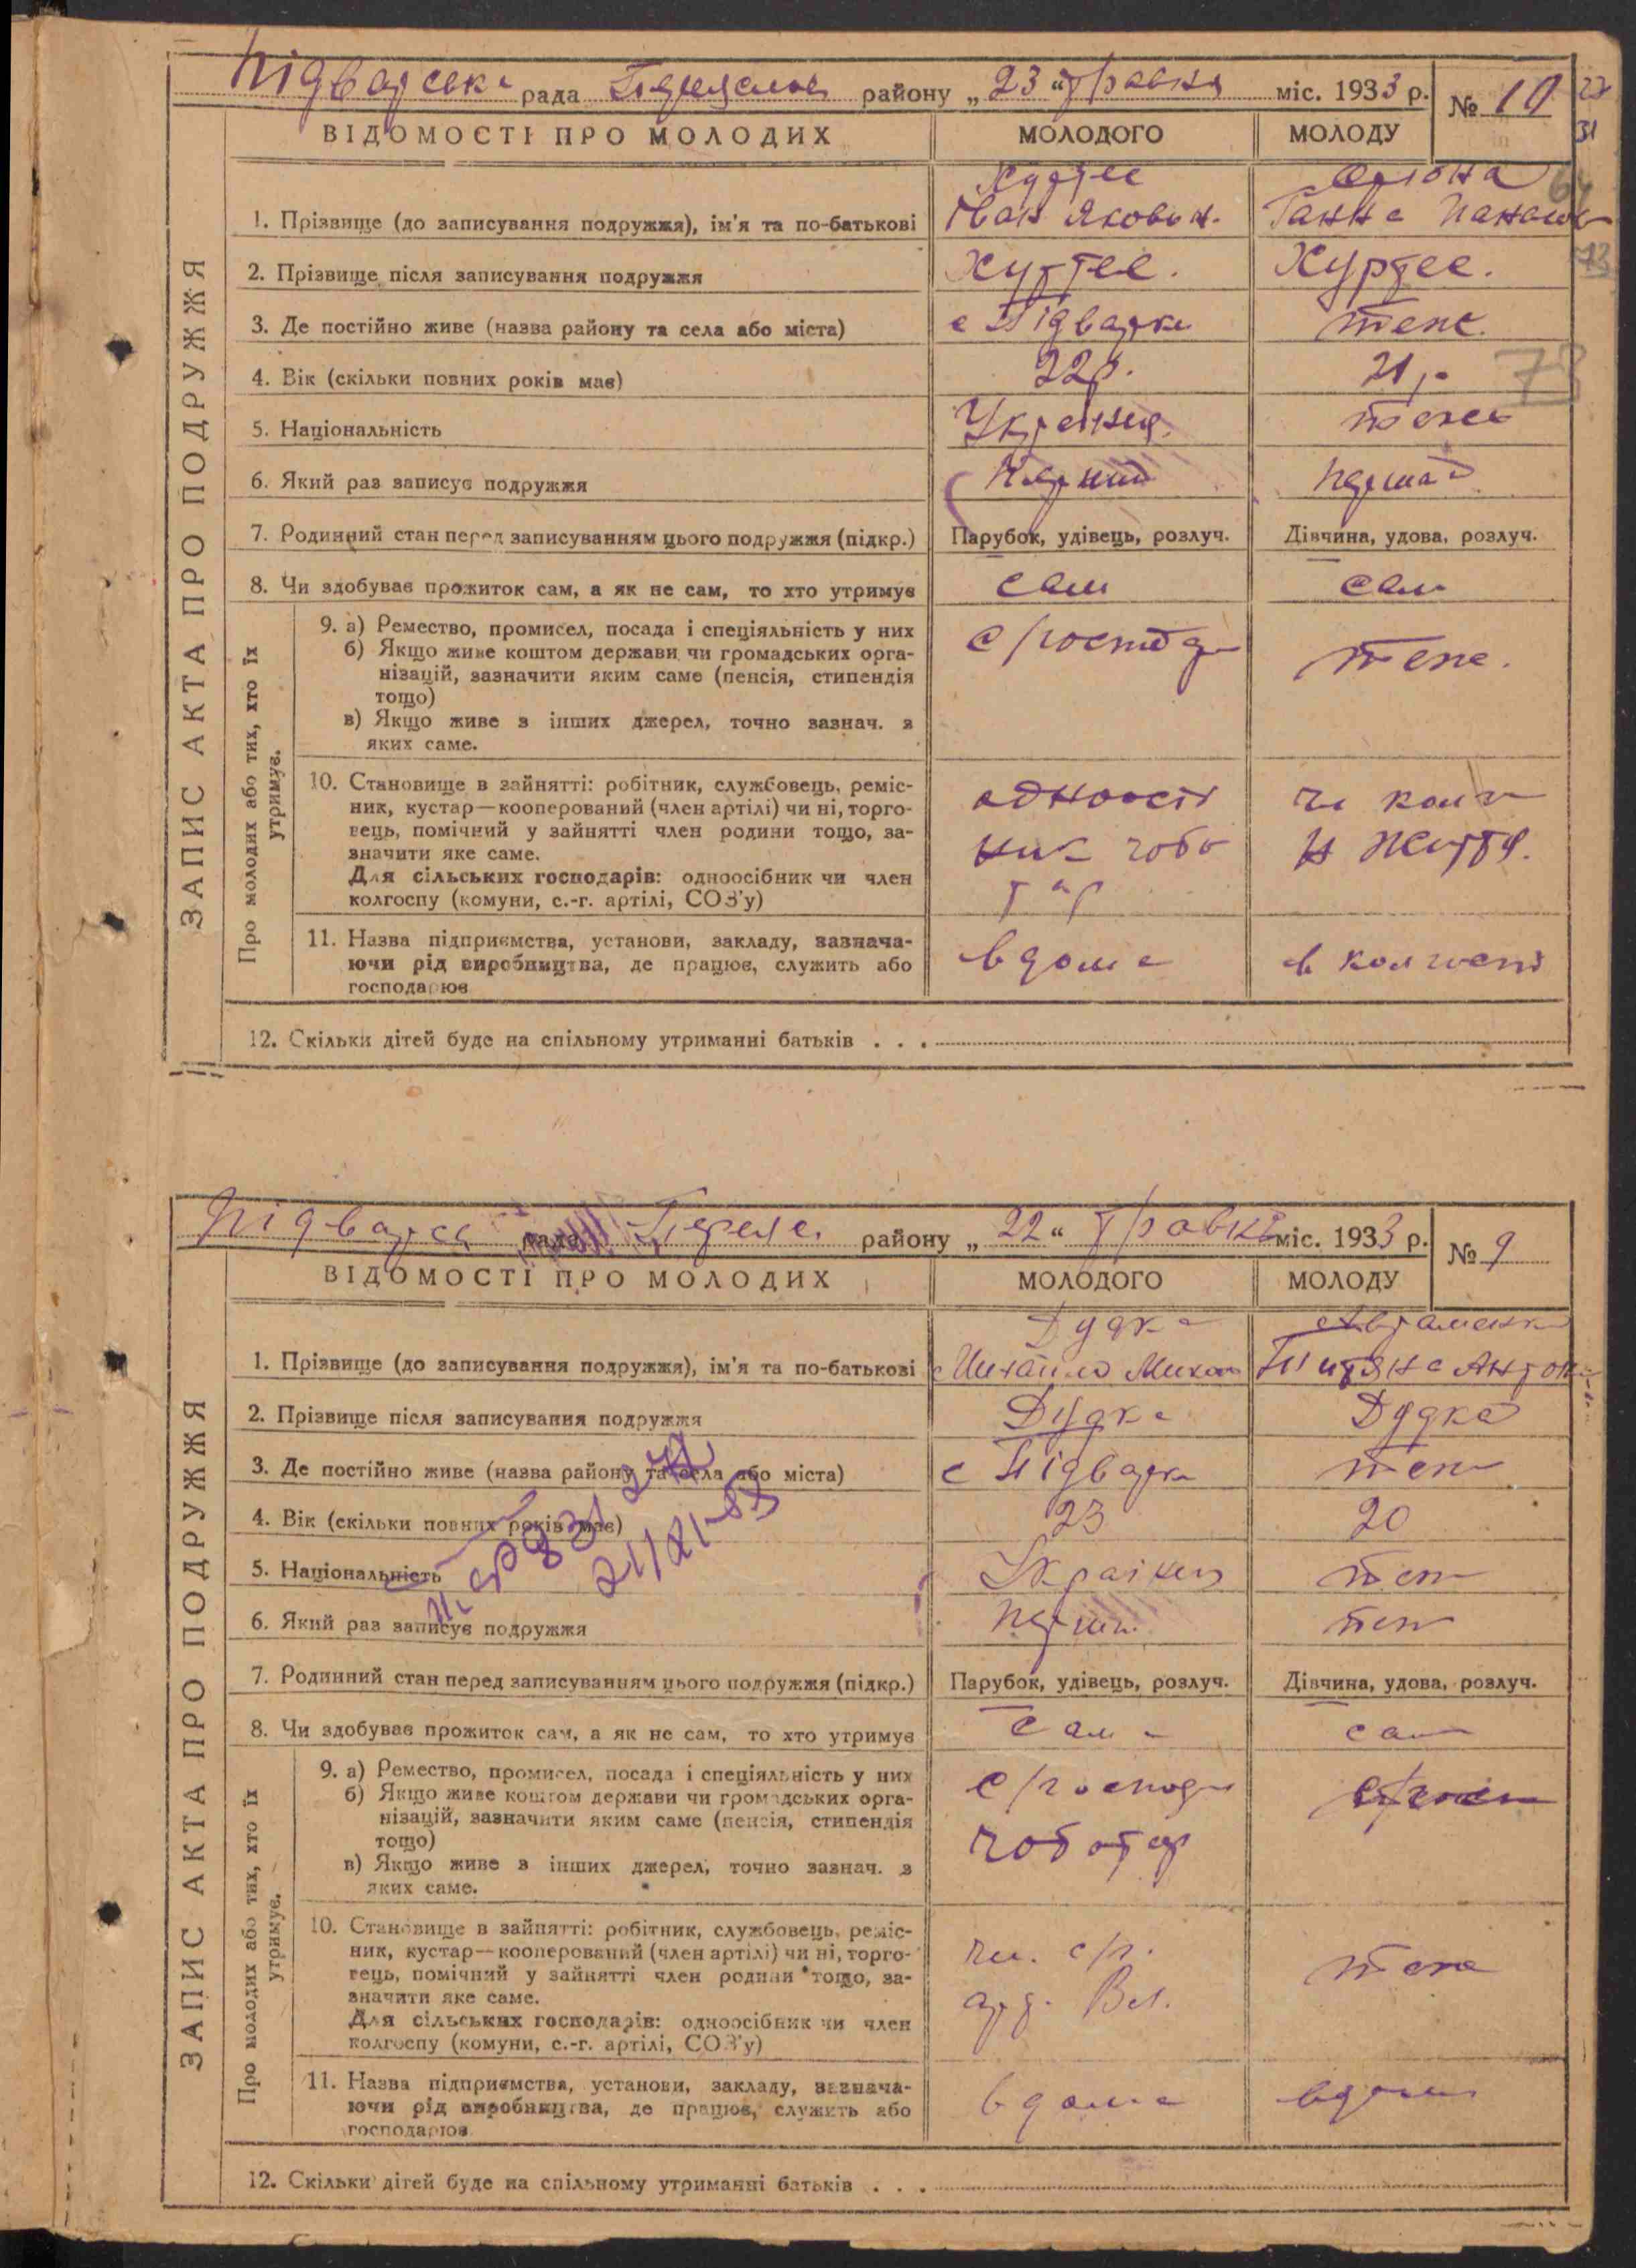 рада району „ 23 “ травня міс. 1933 р.
№ 10
31
ВІДОМОСТІ ПРО МОЛОДИХ МОЛОДОГО МОЛОДУ
ЗАПИС АКТА ПРО ПОДРУЖЖЯ
1. Прізвище (до записування подружжя), ім'я та по-батькові Іван Якович. Ганна
2. Прізвище після записування подружжя
3. Де постійно живе (назва району та села або міста) с Підварки теж.
73
4. Вік (скільки повних років має) 22р. 21р.
5. Національність Українец теж
6. Який раз записує подружжя перший перша
7. Родинний стан перед записуванням цього подружжя (підкр.) Парубок, удівець, розлуч. Дівчина, удова, розлуч.
8. Чи здобуває прожиток сам, а як не сам, то хто утримує сам сам
Про молодих або тих, хто їх
утримує.
9. а) Ремество, промисел, посада і спеціяльність у них
б) Якщо живе коштом держави чи громадських орга-
нізацій, зазначити яким саме (пенсія, стипендія
тощо)
в) Якщо живе з інших джерел, точно зазнач. з
яких саме.
теж.
10. Становище в зайнятті: робітник, службовець, реміс-
ник, кустар—кооперований (член артілі) чи ні, торго-
вець, помічний у зайнятті член родини тощо, за-
значити яке саме.
Для сільських господарів: одноосібник чи член
колгоспу (комуни, с.-г. артілі, СОЗ'у)
одноосіб
ник чобо
тар
11. Назва підприємства, установи, закладу, зазнача-
ючи рід виробництва, де працює, служить або
господарює
вдома в колгоспі
12. Скільки дітей буде на спільному утриманні батьків . . .
рада району „ 22 “ травня міс. 1933 р.
№ 9
ВІДОМОСТІ ПРО МОЛОДИХ МОЛОДОГО МОЛОДУ
ЗАПИС АКТА ПРО ПОДРУЖЖЯ
Дудка Авраменко
1. Прізвище (до записування подружжя), ім'я та по-батькові Михайло Титяна Антон
2. Прізвище після записування подружжя Дудка Дудка
3. Де постійно живе (назва району та села або міста) с Підварки теж
4. Вік (скільки повних років має) 23 20
5. Національність Українец теж
6. Який раз записує подружжя перш. теж
7. Родинний стан перед записуванням цього подружжя (підкр.) Парубок, удівець, розлуч. Дівчина, удова, розлуч.
8. Чи здобуває прожиток сам, а як не сам, то хто утримує сам сам
Про молодих або тих, хто їх
утримує.
9. а) Ремество, промисел, посада і спеціяльність у них
б) Якщо живе коштом держави чи громадських орга-
нізацій, зазначити яким саме (пенсія, стипендія
тощо)
в) Якщо живе з інших джерел, точно зазнач. з
яких саме.
с/господ
чоботар
10. Становище в зайнятті: робітник, службовець, реміс-
ник, кустар—кооперований (член артілі) чи ні, торго-
вець, помічний у зайнятті член родини тощо, за-
значити яке саме.
Для сільських господарів: одноосібник чи член
колгоспу (комуни, с.-г. артілі, СОЗ'у)
чл. с/г. теж
11. Назва підприємства, установи, закладу, зазнача-
ючи рід виробництва, де працює, служить або
господарює
вдома вдома
12. Скільки дітей буде на спільному утриманні батьків . . .